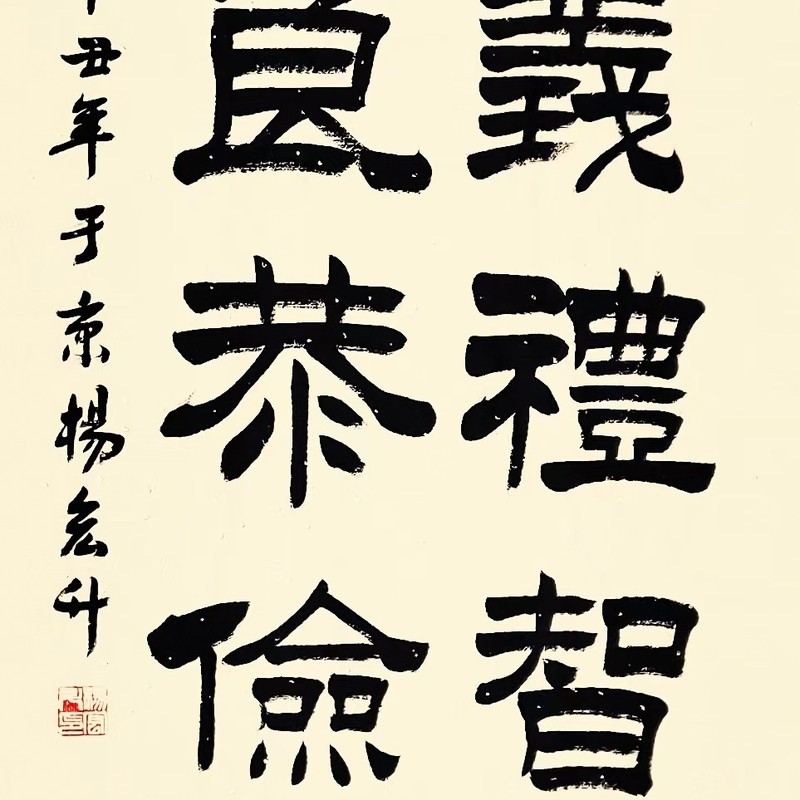 義禮智
良恭儉
丑年于京楊宏升